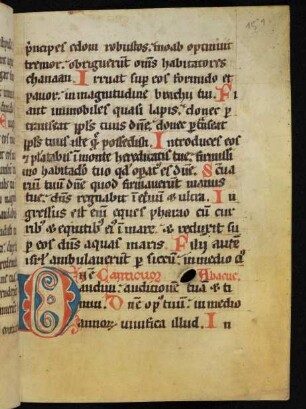 principes edom robustos. moab optinuit
tremor. obriguerunt oms habitatores
chanaan. Irruat sup eos formido et
pauor. in magnitudine brachii tui. Fi
ant immobiles quasi lapis. donec p
transeat ipls tuus dne. donec ptseat
ipls tuus iste que possedisti. Introduces eos
& plantabis in monte hereditatis tue. firmissi
mo habitaclo tuo qd opat es dne. Scua
riu tuu dne quod firmauerunt manus
tue. dnus regnabit in etnu & ultra. In
gressus est eni eques pharao cu cur
rib; & equitib; ei in mare. & reduxit sup
p eos dns aquas maris. Filii aute
isrl ambulauerunt p siccu. in medio ei
Canticum Abacuc.
Dne audiui auditione tua & ti
mui. Dne op tuu. in medio
annoru uiuifica illud. In